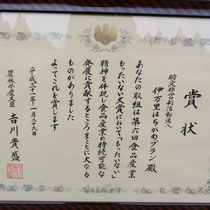 賞状
特定非営利活動法人
伊万里はちがめプラン殿
あなたの取組は第六回食品産業
もったいない大賞において「もったいない」
精神を体現し食品産業の持続可能な
発展に貢献するところまことに大なる
ものがありました
よってこれを賞します
平成三十一年一月二十九日
農林水産大臣 吉川貴盛